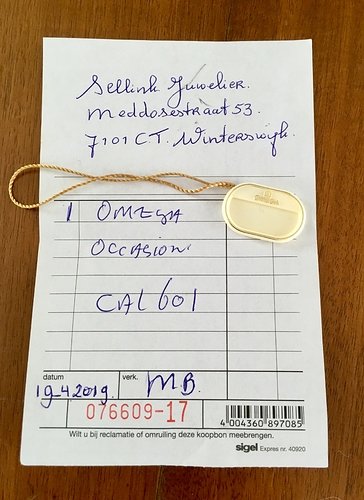 Sellink Juwelier.
Meddosestraat 53.
7101 C.T. Winterswijk.
1 OMEGA
OCCASION
CAL 601
datum
verk.
19-4 2019.
M.B.
076609-17
4 004360 897085
Wilt u bij reclamatie of omruiling deze koopbon meebrengen.
sigel Expres nr. 40920